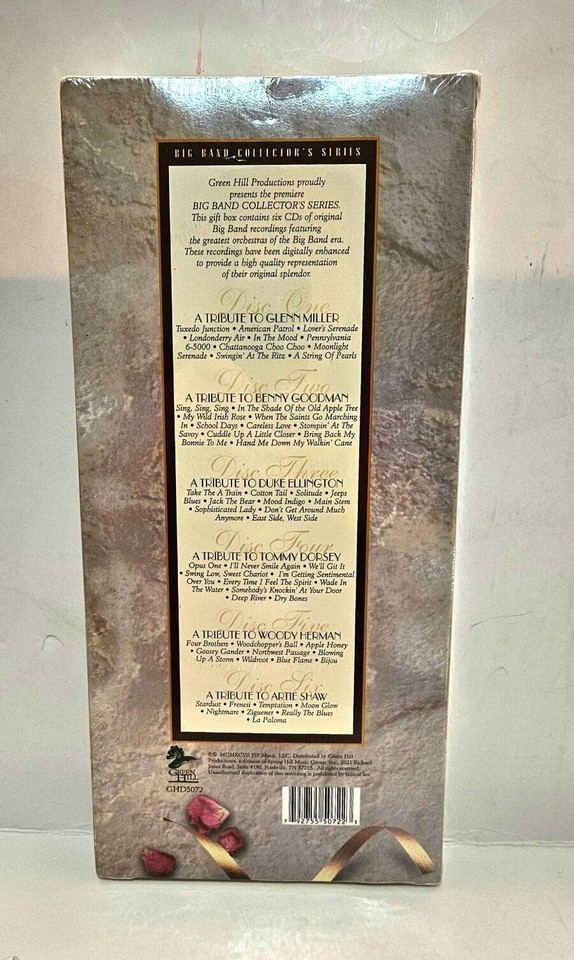 BIG BAND COLLECTOR'S SERIES
Green Hill Productions proudly
presents the premiere
BIG BAND COLLECTOR'S SERIES.
This gift box contains six CDs of original
Big Band recordings featuring
the greatest orchestras of the Big Band era.
These recordings have been digitally enhanced
to provide a high quality representation
of their original splendor.
Disc One
A TRIBUTE TO GLENN MILLER
Tuxedo Junction • American Patrol • Lover's Serenade
• Londonderry Air • In The Mood • Pennsylvania
6-5000 • Chattanooga Choo Choo • Moonlight
Serenade • Swingin' At The Ritz • A String Of Pearls
Disc Two
A TRIBUTE TO BENNY GOODMAN
Sing, Sing, Sing • In The Shade Of The Old Apple Tree
• My Wild Irish Rose • When The Saints Go Marching
In • School Days • Careless Love • Stompin' At The
Savoy • Cuddle Up A Little Closer • Bring Back My
Bonnie To Me • Hand Me Down My Walkin' Cane
Disc Three
A TRIBUTE TO DUKE ELLINGTON
Take The A Train • Cotton Tail • Solitude • Jeeps
Blues • Jack The Bear • Mood Indigo • Main Stem
• Sophisticated Lady • Don't Get Around Much
Anymore • East Side, West Side
Disc Four
A TRIBUTE TO TOMMY DORSEY
Opus One • I'll Never Smile Again • We'll Git It
• Swing Low, Sweet Chariot • I'm Getting Sentimental
Over You • Every Time I Feel The Spirit • Wade In
The Water • Somebody's Knockin' At Your Door
• Deep River • Dry Bones
Disc Five
A TRIBUTE TO WOODY HERMAN
Four Brothers • Woodchopper's Ball • Apple Honey
• Goosey Gander • Northwest Passage • Blowing
Up A Storm • Wildroot • Blue Flame • Bijou
Disc Six
A TRIBUTE TO ARTIE SHAW
Stardust • Frenesi • Temptation • Moon Glow
• Nightmare • Ziguener • Really The Blues
• La Paloma
GREEN HILL
GHD5072
©® MCMXCVII JSP Music, LLC. Distributed by Green Hill
Productions, a division of Spring Hill Music Group, Inc., 2021 Richard
Jones Road, Suite #180, Nashville, TN 37215. All rights reserved.
Unauthorized duplication of this recording is prohibited by federal law.
7 92755 50722 3